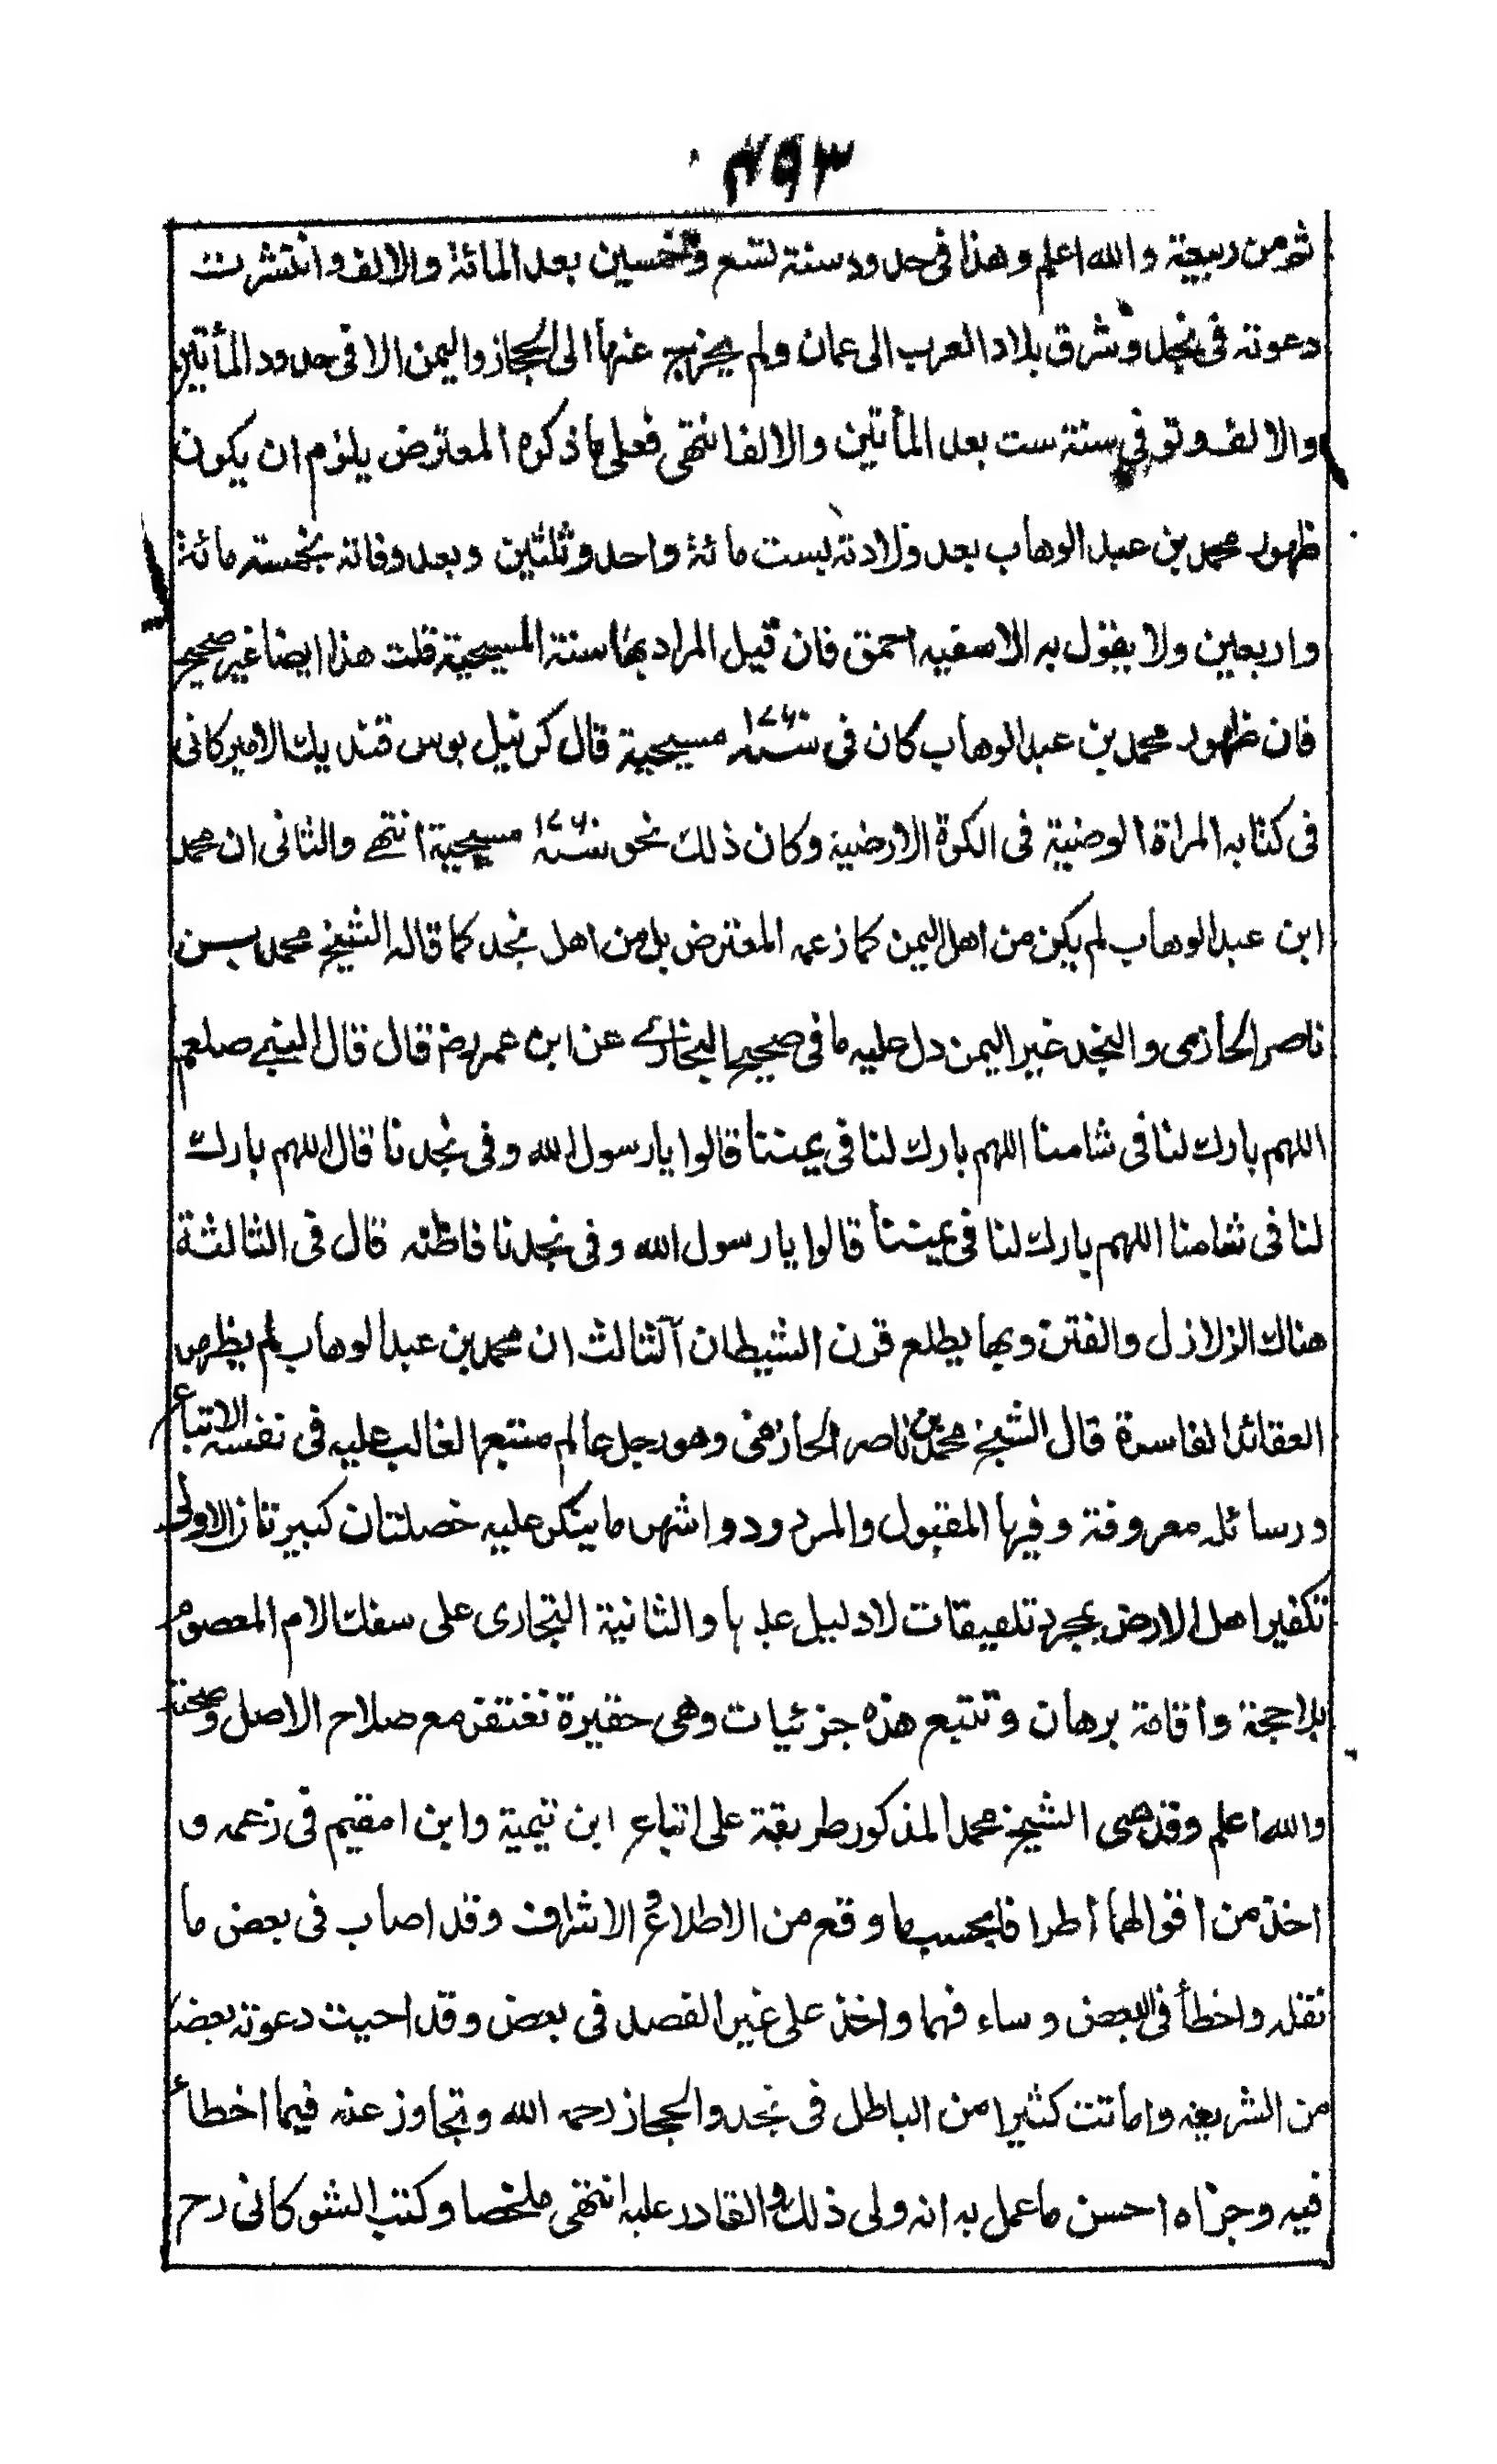 ٣٩٣
ثم من ربيعة والله اعلم وهذا فى حدود سنة تسع وخمسين بعد المائة والالف وانتشرت
دعوته فى نجد وشرق بلاد العرب الى عمان ولم يخرج عنها الى الحجاز واليمن الا فى حدود المأتين
والالف وتوفى سنة ست بعد المأتين والالف انتهى فعلى ما ذكره المعترض يلزم ان يكون
ظهور محمد بن عبد الوهاب بعد ولادته بست مائة واحد وثلثين وبعد وفاته بخمسة مائة
واربعين ولا يقول به الا سفيه احمق فان قيل المراد بها سنة المسيحية قلت هذا ايضا غير صحيح
فان ظهور محمد بن عبد الوهاب كان فى سنة ١٧٦٠ مسيحية قال كرنيل بوس قنديك الاميركانى
فى كتابه المراة الوضية فى الكرة الارضية وكان ذلك نحو سنة ١٧٦٠ مسيحية انتهے والثانى ان محمد
ابن عبد الوهاب لم يكن من اهل اليمن كما زعمه المعترض بل من اهل نجد كما قاله الشيخ محمد بن
ناصر الحازمى والنجد غير اليمن دل عليه ما فى صحيح البخارے عن ابن عمر رض قال قال النبے صلعم
اللهم بارك لنا فى شامنا اللهم بارك لنا فى يمننا قالوا يا رسول الله وفى نجدنا قال اللهم بارك
لنا فى شامنا اللهم بارك لنا فى يمننا قالوا يا رسول الله وفى نجدنا فاظنه قال فى الثالثة
هناك الزلازل والفتن وبها يطلع قرن الشيطان آلثالث ان محمد بن عبد الوهاب لم يظهر
العقائد الفاسدة قال الشيخ محمد بن ناصر الحازمى وهو رجل عالم متبع الغالب عليه فى نفسه الاتباع
ورسائله معروفة وفيها المقبول والمردود واشهر ما ينكر عليه خصلتان كبيرتان الاولى
تكفير اهل الارض بمجرد تلفيقات لا دليل عليها والثانية التجارى على سفك الدم المعصوم
بلا حجة واقامة برهان وتتبع هذه جزئيات وهى حقيرة تغتفر مع صلاح الاصل وصحته
والله اعلم وقد مشى الشيخ محمد المذكور طريقة على اتباع ابن تيمية وابن امقيم فى زعمه و
اخذ من اقوالهما اطرافا بحسب ما وقع من الاطلاع والاشراف وقد اصاب فى بعض ما
نقله واخطأ فى البعض وساء فهما واخذ على غير القصد فى بعض وقد احيت دعوته بعضا
من الشريعة واماتت كثيرا من الباطل فى نجد والحجاز رحمه الله وتجاوز عنه فيما اخطأ
فيه وجزاه احسن ما عمل به انه ولى ذلك والقادر عليه انتهى ملخصا وكتب الشوكانى رح